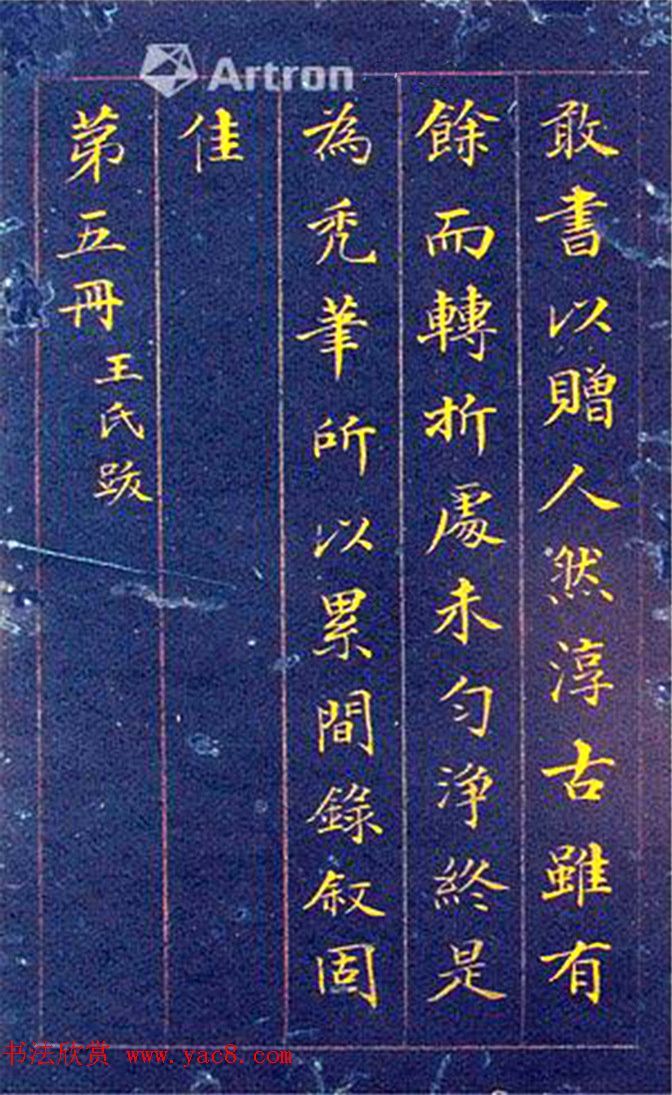 敢書以贈人然淳古雖有
餘而轉折處未匀淨終是
為禿筆所以累間錄叙固
佳
苐五冊 王氏跋
Artron
书法欣赏 www.yac8.com